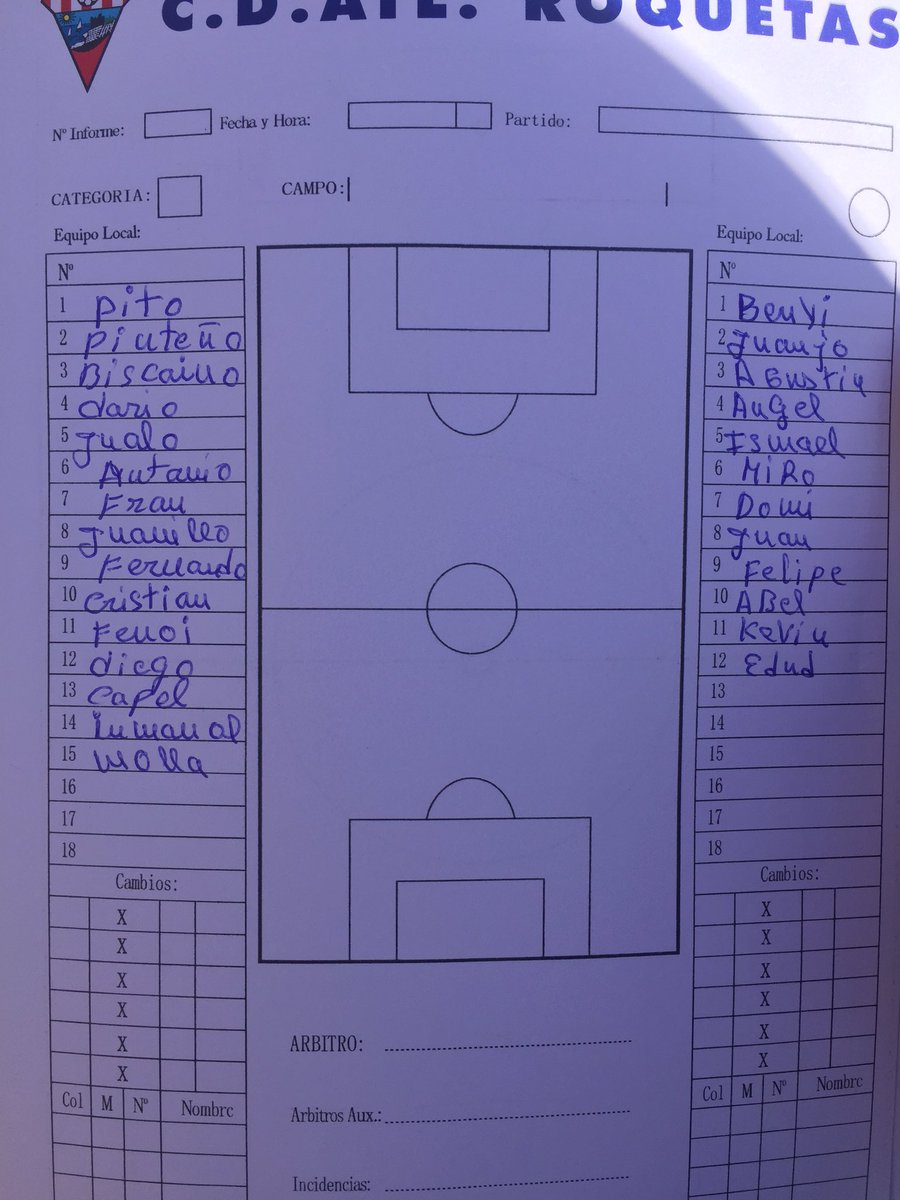 C.D.ATL. ROQUETAS
Nº Informe: Fecha y Hora: Partido:
CATEGORIA: CAMPO:
Equipo Local:
Nº
1 Pito
2 Piuteño
3 Biscaino
4 dario
5 Jualo
6 Antonio
7 Fran
8 Juanillo
9 Fernando
10 Cristian
11 Fenoi
12 diego
13 Capel
14 Inmanol
15 Molla
16
17
18
Cambios:
X
X
X
X
X
X
Col M Nº Nombre
Equipo Local:
Nº
1 Benyi
2 Juanjo
3 AGustin
4 AnGel
5 Ismael
6 MiRo
7 Domi
8 Juan
9 Felipe
10 ABel
11 Kevin
12 Edud
13
14
15
16
17
18
Cambios:
X
X
X
X
X
X
Col M Nº Nombre
ARBITRO:
Arbitros Aux.:
Incidencias: